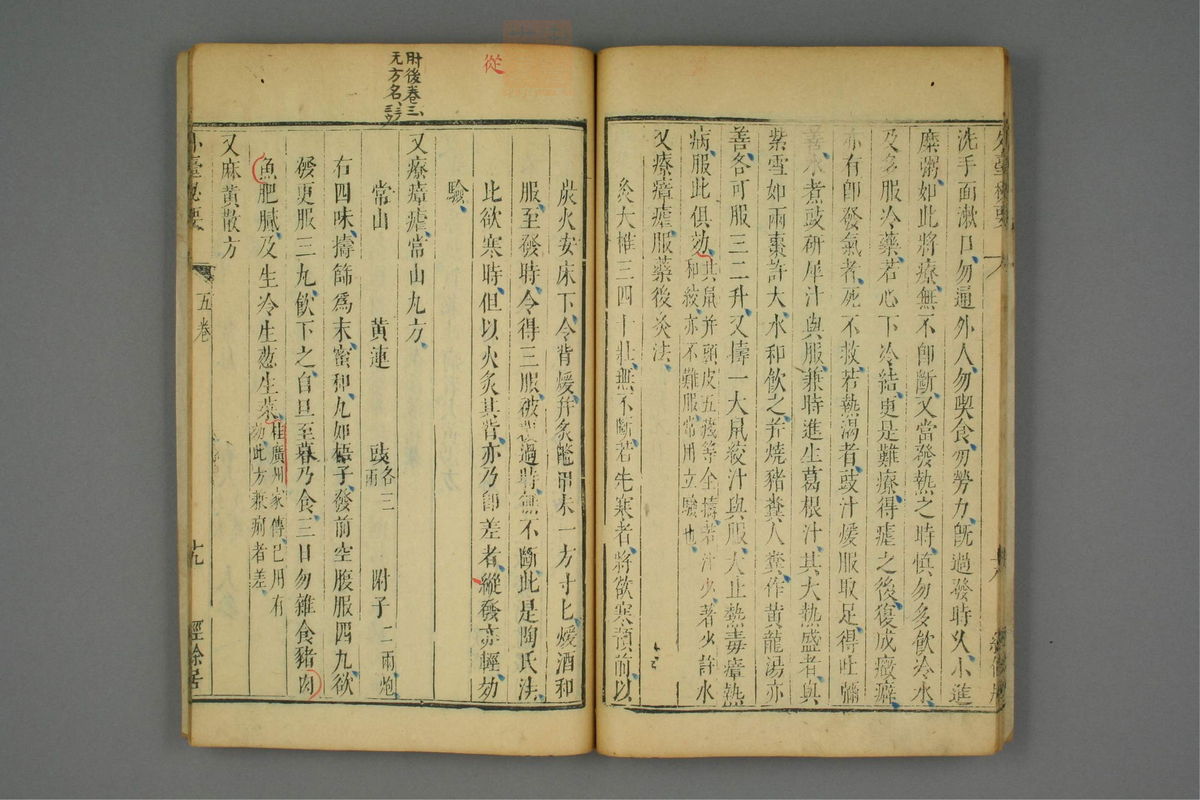 外臺秘要
洗手面漱口勿通外人勿喫食勿勞力旣過發時久小進
糜粥如此將療無不卽斷又當發熱之時慎勿多飲冷水
及多服冷藥若心下冷結更是難療得瘧之後復成癥癖
亦有卽發氣者死不救若熱渴者豉汁煖服取足得吐彌
善水煮豉研犀汁與服兼時進生葛根汁其大熱盛者與
紫雪如兩棗許大水和飲之并燒豬糞人糞作黄龍湯亦
善各可服三二升又擣一大鼠絞汁與服大止熱毒瘴熱
病服此俱効
其鼠并頭皮五藏等全擣若汁少著少許水
和絞亦不難服常用立驗也
又療瘴瘧服藥後灸法
灸大椎三四十壯無不斷若先寒者將欲寒預前以
炭火安床下令背煖并炙鼈甲末一方寸匕煖酒和
服至發時令得三服破過時無不斷此是陶氏法
此欲寒時但以火炙其背亦乃卽差者縱發亦輕効
驗
又療瘴瘧常山丸方
常山 黄連 豉各三兩 附子二兩炮
右四味擣篩爲末蜜和丸如梧子發前空腹服四丸欲
發更服三丸飲下之自旦至暮乃食三日勿雜食豬肉
魚肥膩及生冷生葱生菜
桂廣州家傳已用有
効此方兼痢者差
又麻黄散方
外臺秘要 五卷 十九 經餘居
肘後卷三
无方名
從